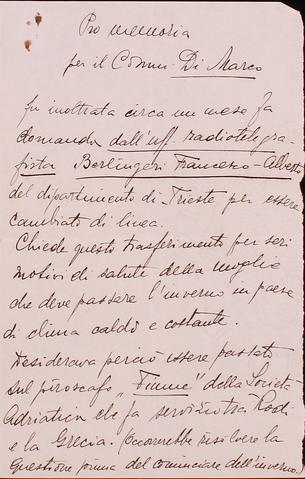 Pro memoria
per il Comm. Di Marco
fu inoltrata circa un mese fa
domanda dall'uff. radiotelegra-
fista Berlingeri Francesco-Alberto
del dipartimento di Trieste per essere
cambiato di linea.
Chiede questo trasferimento per seri
motivi di salute della moglie
che deve passare l'inverno in paese
di clima caldo e costante.
Desiderava perciò essere passato
sul piroscafo "Fiume" della Società
Adriatica che fa servizio tra Rodi
e la Grecia. (Occorrerebbe risolvere la
questione prima del cominciare dell'inverno.)